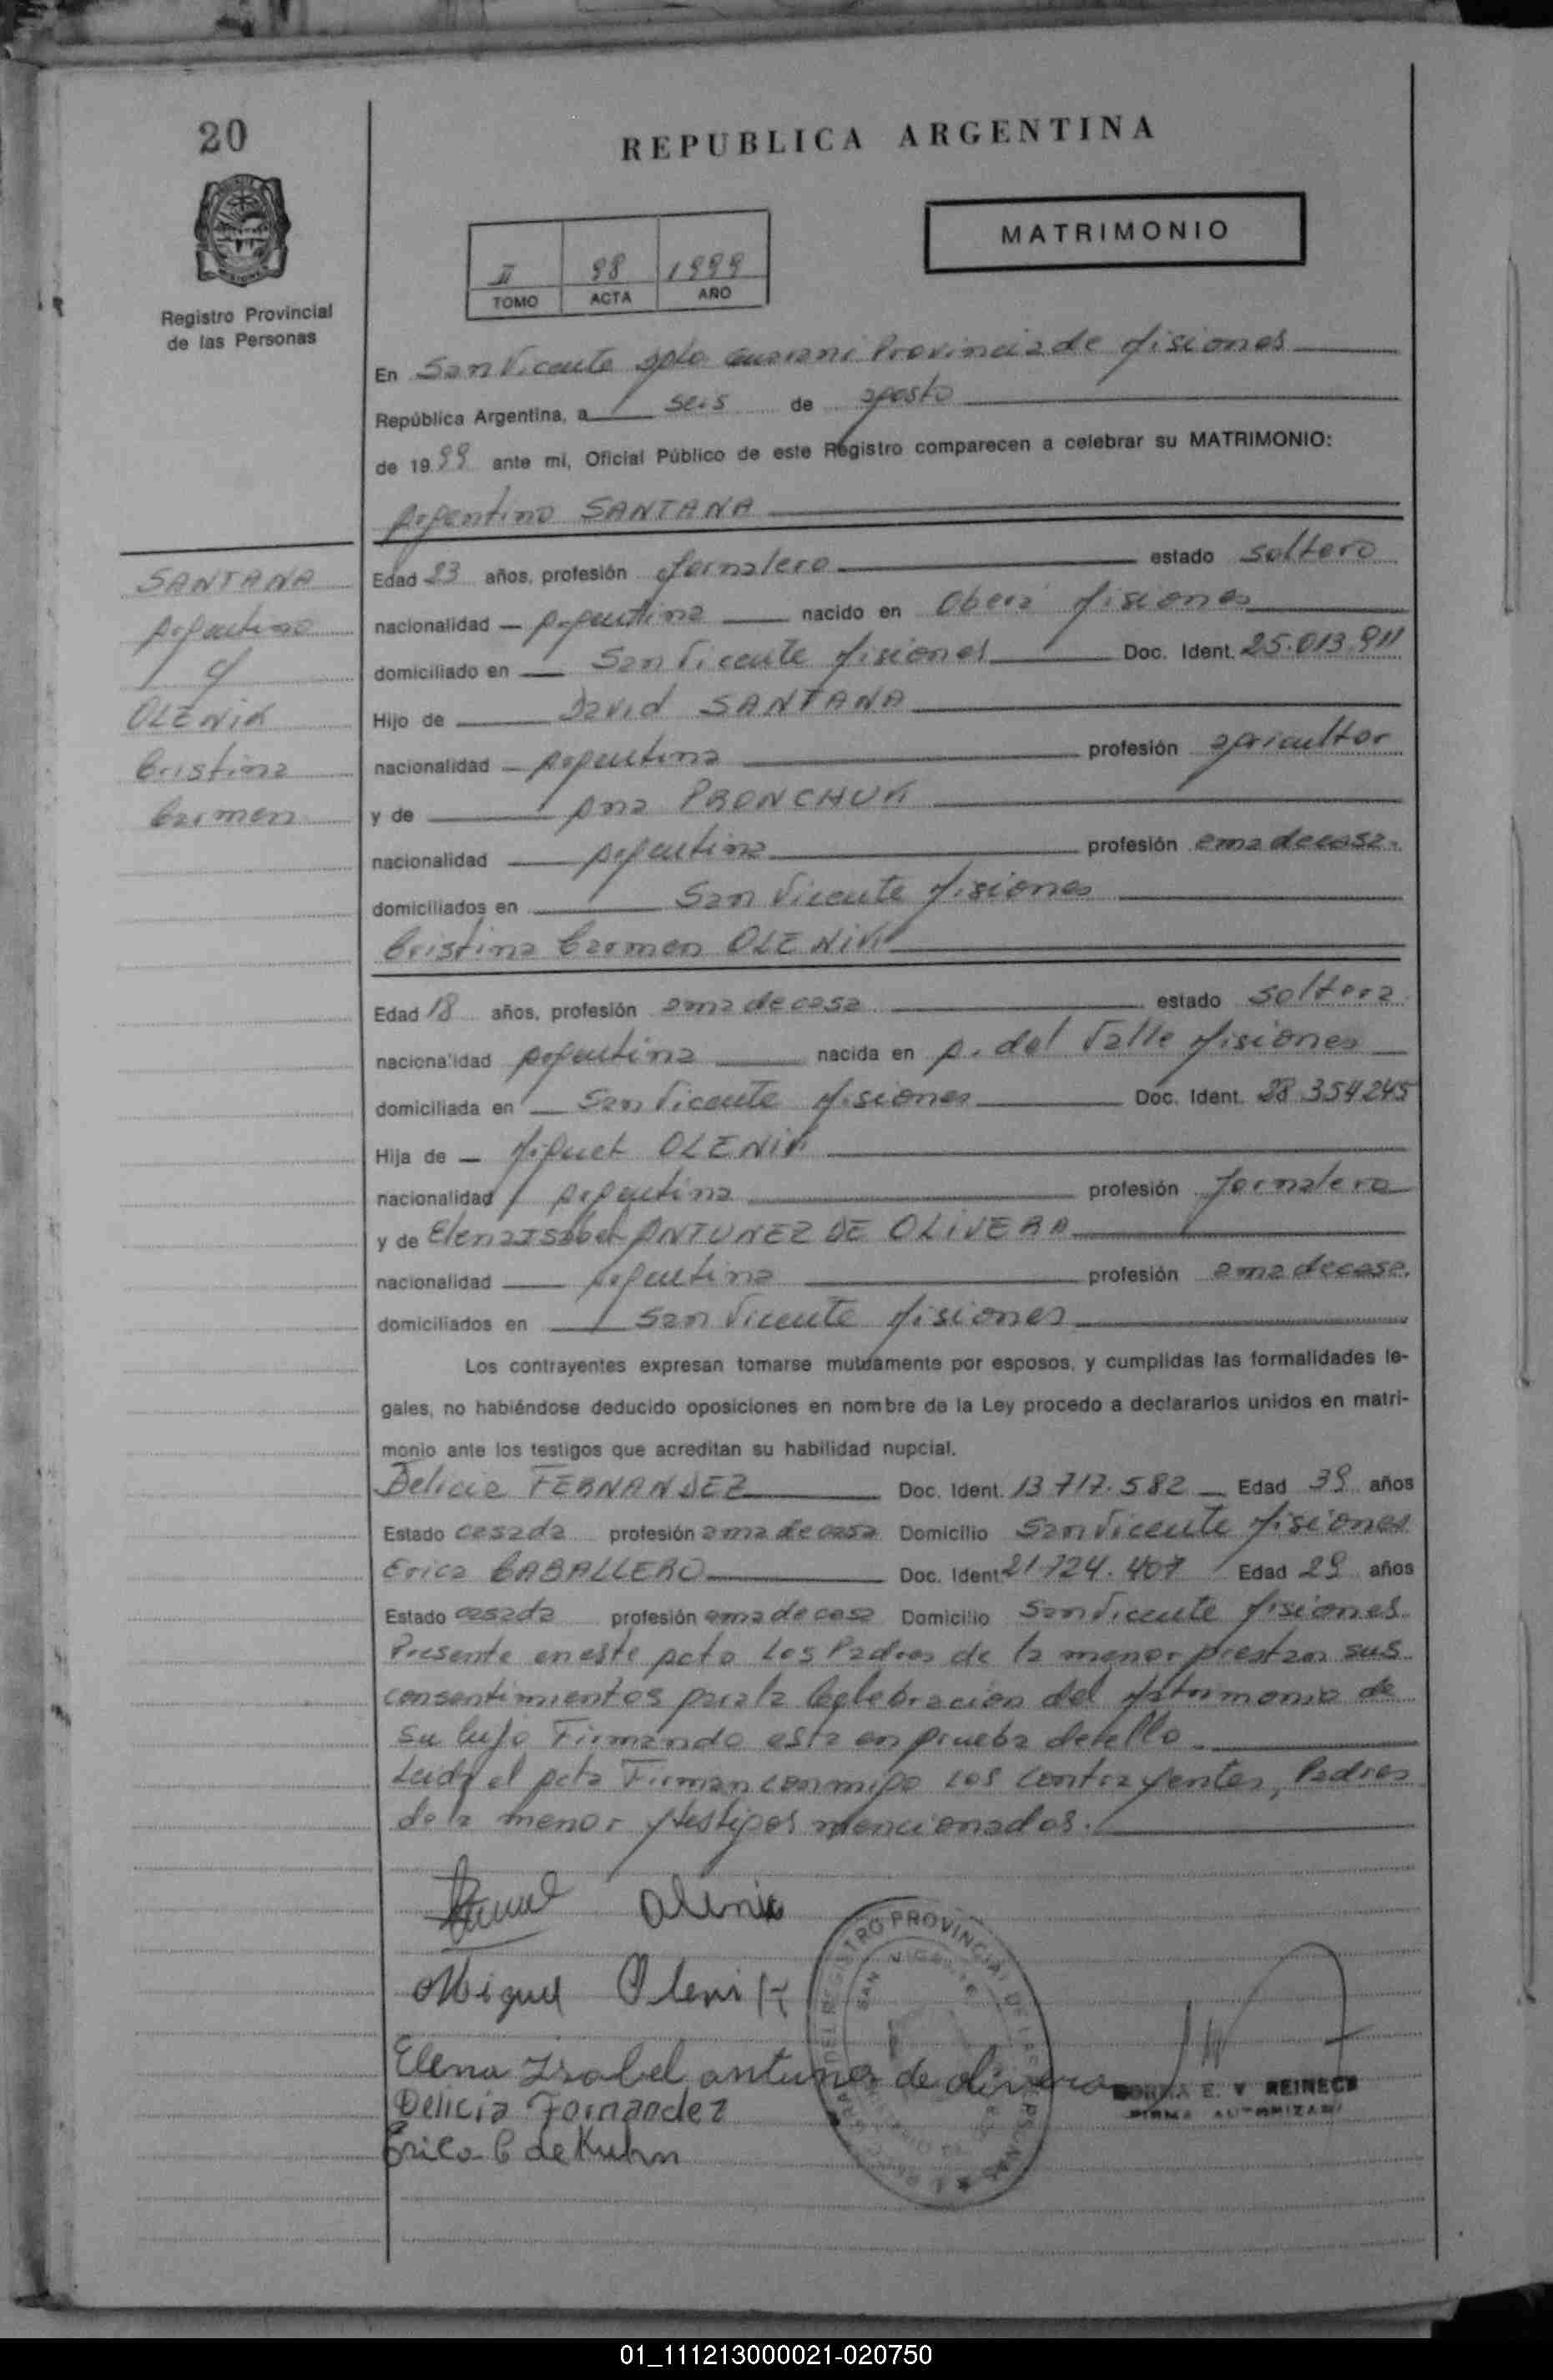 20
REPUBLICA ARGENTINA
MATRIMONIO
II 98 1999
TOMO ACTA AÑO
Registro Provincial
de las Personas
En San Vicente Dpto Guarani Provincia de Misiones
República Argentina, a seis de agosto
de 1999 ante mi, Oficial Público de este Registro comparecen a celebrar su MATRIMONIO:
Argentino SANTANA
SANTANA
Argentino
y
OLENIK
Cristina
Carmen
Edad 23 años, profesión Jornalero estado soltero
nacionalidad Argentina nacido en Oberá Misiones
domiciliado en San Vicente Misiones Doc. Ident. 25.013.911
Hijo de David SANTANA
nacionalidad Argentina profesión agricultor
y de Ana PRONCHUK
nacionalidad Argentina profesión ama de casa.
domiciliados en San Vicente Misiones
Cristina Carmen OLENIK
Edad 18 años, profesión ama de casa estado soltera
nacionalidad Argentina nacida en A. del Valle Misiones
domiciliada en San Vicente Misiones Doc. Ident. 28.354245
Hija de Miguel OLENIK
nacionalidad Argentina profesión Jornalero
y de Elena Isabel ANTUNEZ DE OLIVERA
nacionalidad Argentina profesión ama de casa.
domiciliados en San Vicente Misiones
Los contrayentes expresan tomarse mutuamente por esposos, y cumplidas las formalidades le-
gales, no habiéndose deducido oposiciones en nombre de la Ley procedo a declararlos unidos en matri-
monio ante los testigos que acreditan su habilidad nupcial.
Delicia FERNANDEZ Doc. Ident. 13.717.582 Edad 39 años
Estado casada profesión ama de casa Domicilio San Vicente Misiones
Erica CABALLERO Doc. Ident. 21.724.407 Edad 29 años
Estado casada profesión ama de casa Domicilio San Vicente Misiones
Presente en este Acto Los Padres de la menor prestan sus
consentimientos para la Celebracion del Matrimonio de
su hija Firmando esta en prueba de ello.
Leida el Acta Firman conmigo los contrayentes, Padres
de la menor y testigos mencionados.
Olenik
Miguel Olenik
Elena Isabel antunes de olivera
Delicia Fernandez
Erica C de Kuhn
REGISTRO PROVINCIAL DE LAS PERSONAS
SAN VICENTE
E. V REINECK
FIRMA AUTORIZADA
01_111213000021-020750